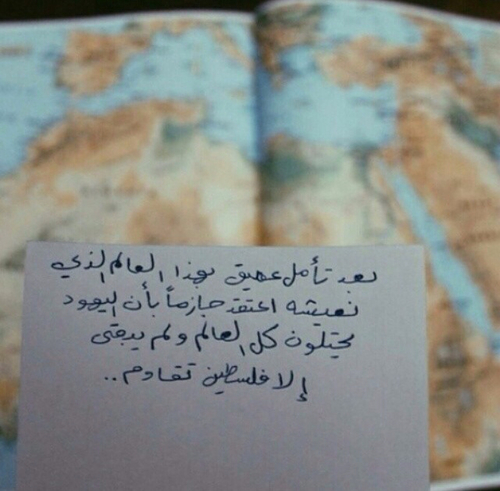 بعد تأمل عميق بهذا العالم الذي
نعيشه اعتقد جازماً بأن اليهود
يحتلون كل العالم ولم يبقى
إلا فلسطين تقاوم..